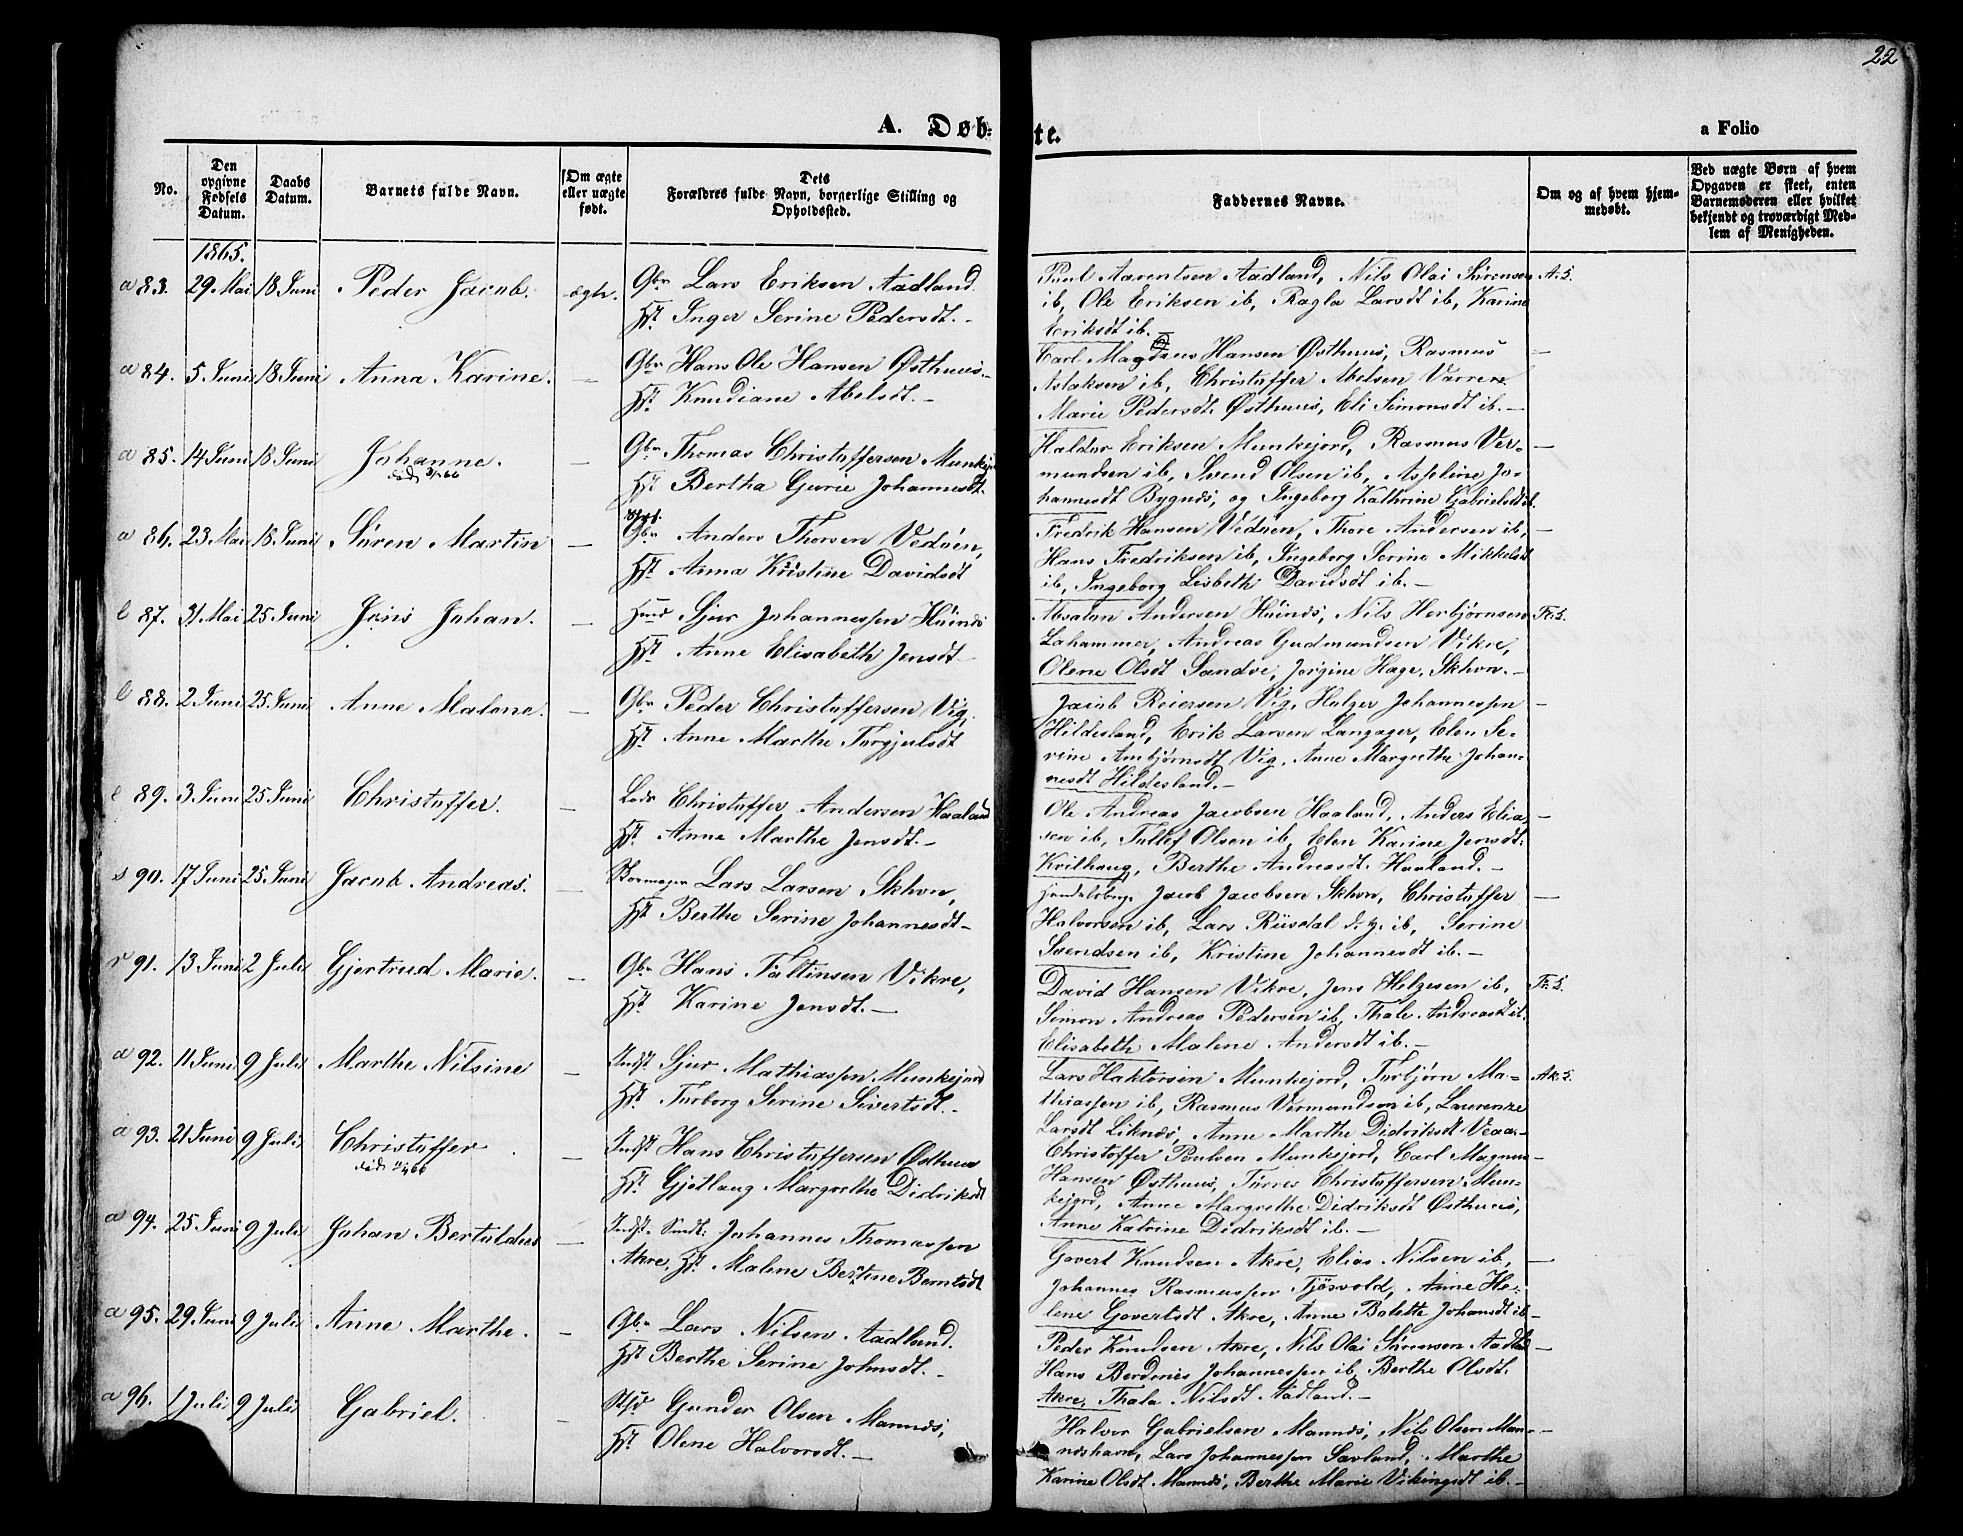 22
A. Døb-
te.
a Folio
No.
Den
opgivne
Fødsels
Datum.
Daabs
Datum.
Barnets fulde Navn.
Om ægte
eller uægte
født.
Dets
Forældres fulde Navn, borgerlige Stilling og
Opholdssted.
Faddernes Navne.
Om og af hvem hjem-
medøbt.
Ved uægte Børn af hvem
Opgaven er skeet, enten
Barnemoderen eller hvilket
bekjendt og troværdigt Med-
lem af Menigheden.
1865.
a 83. 29. Mai 18 Juni Peder Jacob. ægte. Gbr Lars Eriksen Aadland.
Hst. Inger Serine Pedersdt. -
Poul Aarentsen Aadland, Nils Olai Sörensen
ib, Ole Eriksen ib, Ragla Larsdt ib, Karine
Eriksdt ib.
A. S.
a 84. 5 Juni 18 Juni Anna Karine. - Gbr Hans Ole Hansen Østhuus.
Hst. Knudiane Abelsdt. -
Carl Hansen Østhuus, Rasmus
Aslaksen ib, Christoffer Abelsen Varren
Marie Pedersdt. Østhuus, Eli Simonsdt ib. -
a 85. 14 Juni 18 Juni Johanne. - Gbr Thomas Christoffersen
död
Hst Bertha Gurie Johannesdt.
Haldor Eriksen Munkejord, Rasmus Ver-
mundsen ib, Svend Olsen ib, Jo-
hannesdt Bygnæs, og Ingeborg Kathrine Gabrielsdt ib.
a 86. 23. Mai 18 Juni Sören Martin - Gbr Anders Thorsen Vedöen,
Hst Anna Kristine Davidsdt
Fredrik Hansen Vedöen, Thore Andersen ib,
Hans Fredriksen ib, Ingeborg Serine Mikkelsdt
ib, Ingeborg Lisbeth Davidsdt ib. -
b 87. 31 Mai 25 Juni Johan. - Huusd Sjur Johannessen
Hst. Anne Elisabeth Jensdt
Absalon Andersen Nils Herbjørnsen
Lahammer, Andreas Gudmundsen Vikre,
Olene Olsdt Sandve, Jorgine Hage, Skhvn. -
Fr. S.
b 88. 2 Juni 25 Juni Anne Malene. - Gbr Peder Christoffersen Vig,
Hst. Anne Marthe Torgjulsdt
Jacob Reiersen Vig, Holger Johannessen
Hildesland, Erik Larsen Langager, Elen Se-
rine Ambjörnsdt Vig, Anne Margrethe Johan-
nesdt Hildesland. -
89. 3 Juni 25 Juni Christoffer. - Lods Christoffer Andersen Haaland
Hst. Anne Marthe Jensdt. -
Ole Andreas Jacobsen Haaland, Anders Elia-
sen ib, Tollef Olsen ib, Elen Karine Jensdt.
Kvilhaug, Berthe Andreasdt. Haaland. -
s 90. 17 Juni 25. Juni Jacob Andreas. - Skomager Lars Larsen Skhvn,
Hst Berthe Serine Johannesdt -
Jacob Jacobsen Skhvn, Christoffer
Halvorsen ib, Lars ib, Serine
Svendsen ib, Kristine Johannesdt ib. -
91. 13 Juni 2 Juli Gjertrud Marie. - Gbr Hans Faltinsen Vikre,
Hst. Karine Jensdt. -
David Hansen Vikre, Jens Helgesen ib,
Simon Andreas Pedersen ib, Thale Andreasdt ib.
Elisabeth Malene Andersdt ib. -
Fr. S.
a 92. 11 Juni 9 Juli Marthe Nilsine - Indst Sjur Mathiassen Munkejord
Hst. Torborg Serine Sivertsdt. -
Lars Haktorsen Munkejord, Torbjörn Ma-
thiassen ib, Rasmus Vermundsen ib, Laurenze
Larsdt Liknæs, Anne Marthe Didriksdt Veaa-
Ak. S.
a 93. 21 Juni 9 Juli Christoffer - Indst Hans Christoffersen Østhuus
död
Hst. Gjetlaug Margrethe Didriksdt
Christoffer Poulsen Munkejord, Carl Magnus
Hansen Østhuus, Törres Christoffersen Mun-
kejord, Anne Margrethe Didriksdt Østhuus,
Anne Katrine Didriksdt ib. -
a 94. 25 Juni 9 Juli Johan - Indst. Johannes Thomassen
Akre, Hst. Malene Bertine Berntsdt
Govert Knudsen Akre, Elias Nilsen ib,
Johannes Rasmussen Tjösvold, Anne He-
lene Govertsdt Akre, Anne Bolette Johansdt ib
a 95. 29. Juni 9 Juli Anne Marthe. - Gbr Lars Nilsen Aadland.
Hst Berthe Serine Johnsdt. -
Peder Knudsen Akre, Nils Olai Sörensen Aadld
Hans Berdines Johannessen ib, Berthe Olsdt.
Akre, Thala Nilsdt Aadland. -
a 96. 1 Juli 9 Juli Gabriel. - Gunder Olsen Mannæs,
Hst. Olene Halvorsdt. -
Halvor Gabrielsen Mannæs, Nils Olsen Man-
næshavn, Lars Johannessen Sævland, Marthe
Karine Olsdt Mannæs, Berthe Marie Vikingsdt ib. -